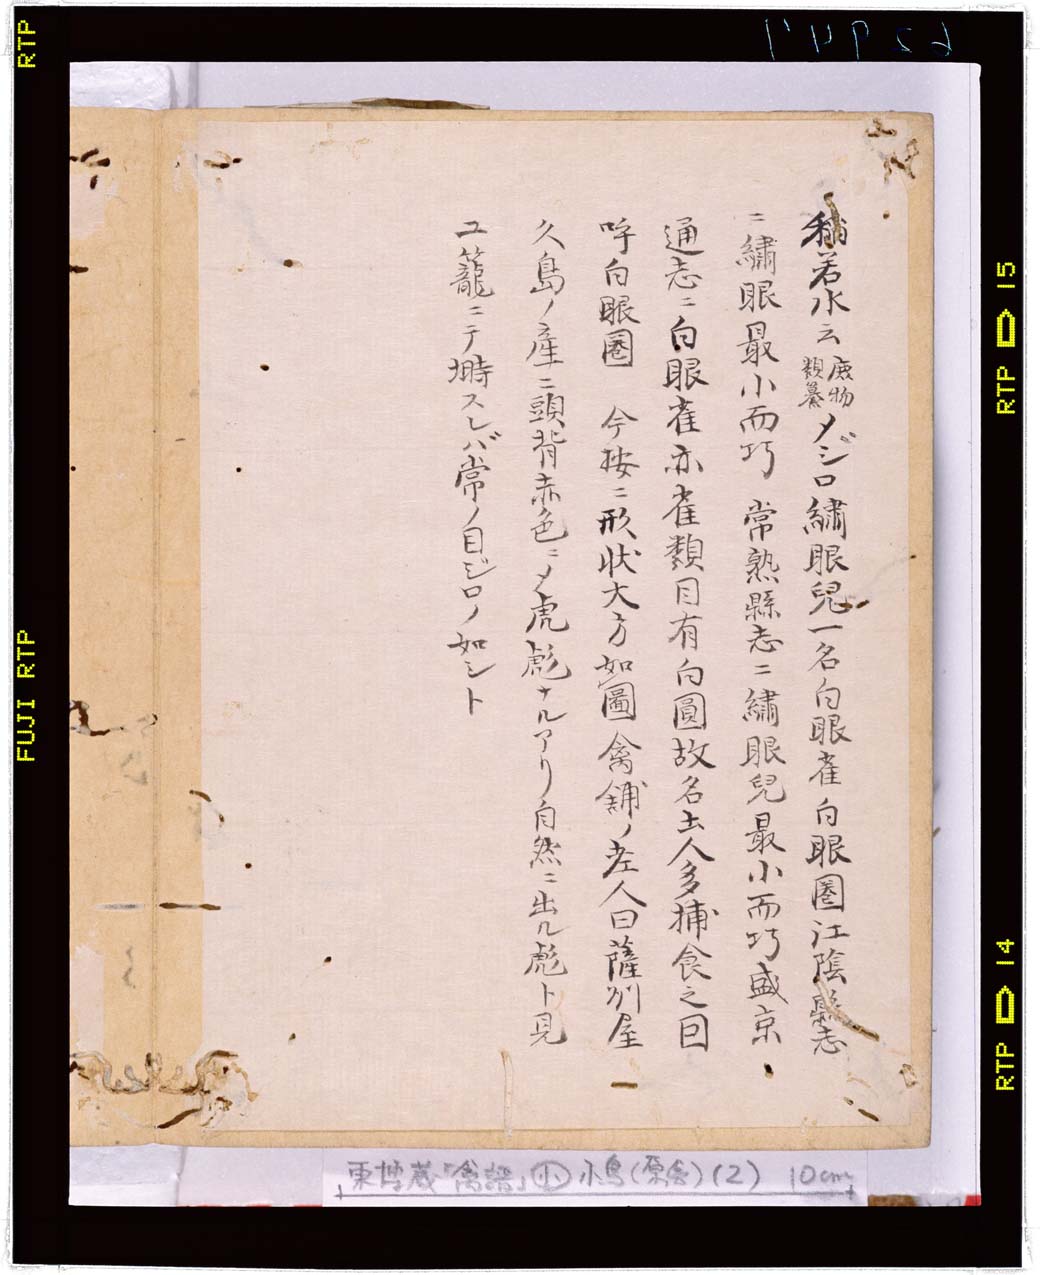 稲若水云 庶物類纂 メジロ繡眼兒一名白眼雀白眼圏江陰縣志
ニ繡眼最小而巧 常熟縣志ニ繡眼兒最小而巧盛京
通志ニ白眼雀亦雀類目有白圓故名土人多捕食之回
呼白眼圏 今按ニ形状大方如圖禽舗ノ老人曰薩州屋
久島ノ産ニ頭背赤色ニメ虎彪ナルアリ自然ニ出ル彪ト見
ユ籠ニテ塒スレバ常ノ目ジロノ如シト
東博蔵『禽譜』 小鳥(原会)(2) 10cm
FUJI RTP
RTP
RTP 15
RTP 14
62947